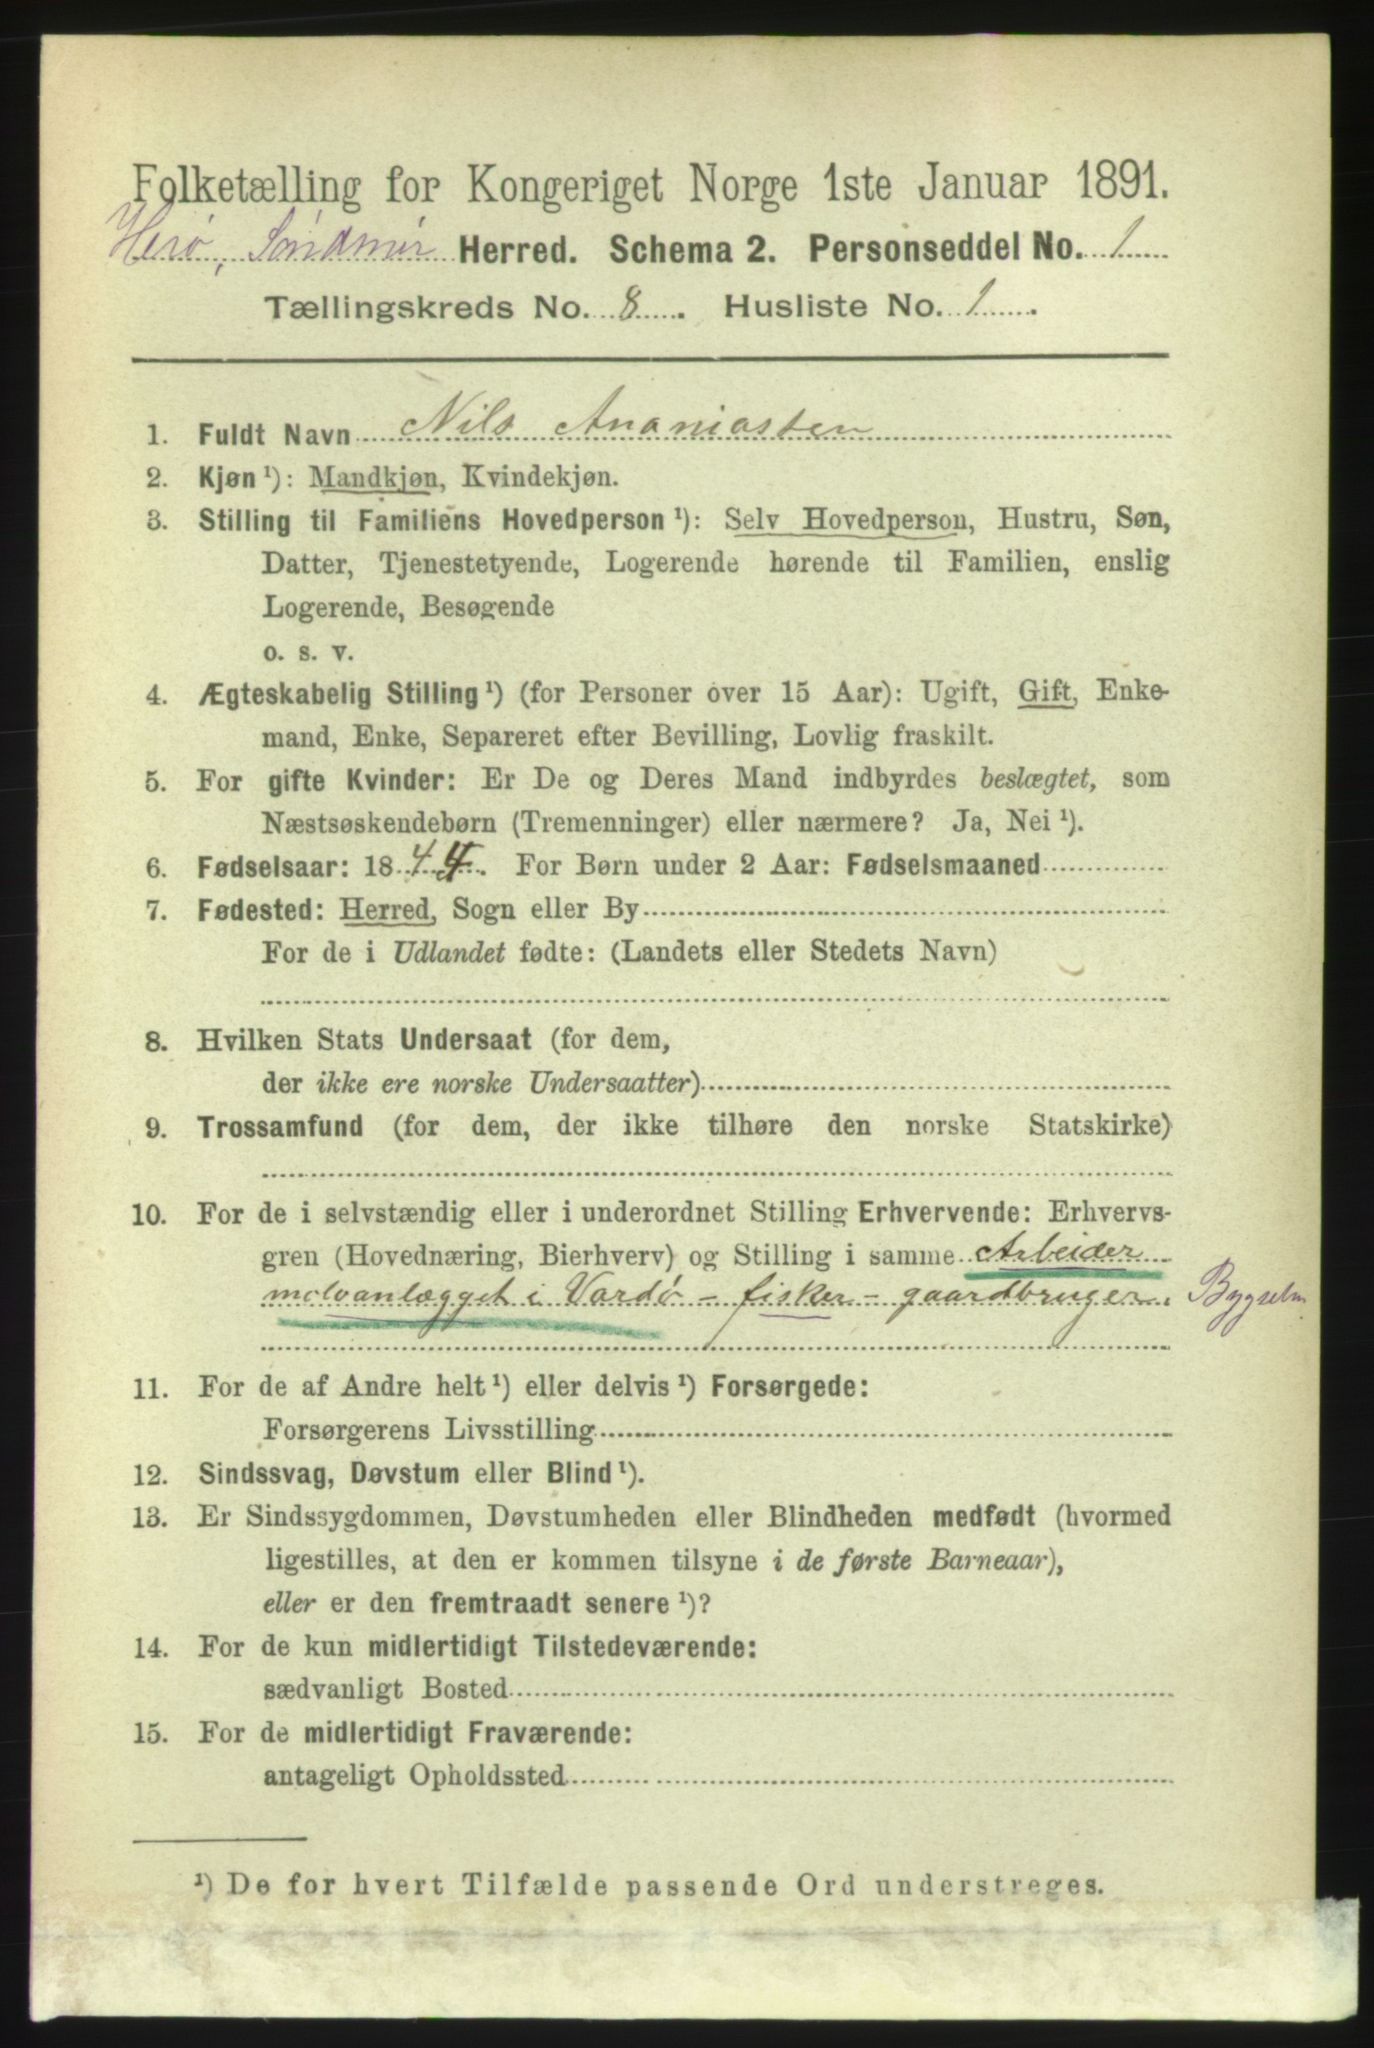 Folketælling for Kongeriget Norge 1ste Januar 1891.
Herø, Søndmør Herred. Schema 2. Personseddel No. 1
Tællingskreds No. 8. Husliste No. 1.
1. Fuldt Navn Nils Ananiassen
2. Kjøn ¹): Mandkjøn, Kvindekjøn.
3. Stilling til Familiens Hovedperson ¹): Selv Hovedperson, Hustru, Søn,
Datter, Tjenestetyende, Logerende hørende til Familien, enslig
Logerende, Besøgende
o. s. v.
4. Ægteskabelig Stilling ¹) (for Personer over 15 Aar): Ugift, Gift, Enke-
mand, Enke, Separeret efter Bevilling, Lovlig fraskilt.
5. For gifte Kvinder: Er De og Deres Mand indbyrdes beslægtet, som
Næstsøskendebørn (Tremenninger) eller nærmere? Ja, Nei ¹).
6. Fødselsaar: 1844. For Børn under 2 Aar: Fødselsmaaned
7. Fødested: Herred, Sogn eller By
For de i Udlandet fødte: (Landets eller Stedets Navn)
8. Hvilken Stats Undersaat (for dem,
der ikke ere norske Undersaatter)
9. Trossamfund (for dem, der ikke tilhøre den norske Statskirke)
10. For de i selvstændig eller i underordnet Stilling Erhvervende: Erhvervs-
gren (Hovednæring, Bierhverv) og Stilling i samme Arbeider
moloanlægget i Vardø - fisker - gaardbruger. Bygselm
11. For de af Andre helt ¹) eller delvis ¹) Forsørgede:
Forsørgerens Livsstilling
12. Sindssvag, Døvstum eller Blind ¹).
13. Er Sindssygdommen, Døvstumheden eller Blindheden medfødt (hvormed
ligestilles, at den er kommen tilsyne i de første Barneaar),
eller er den fremtraadt senere ¹)?
14. For de kun midlertidigt Tilstedeværende:
sædvanligt Bosted
15. For de midlertidigt Fraværende:
antageligt Opholdssted
¹) De for hvert Tilfælde passende Ord understreges.